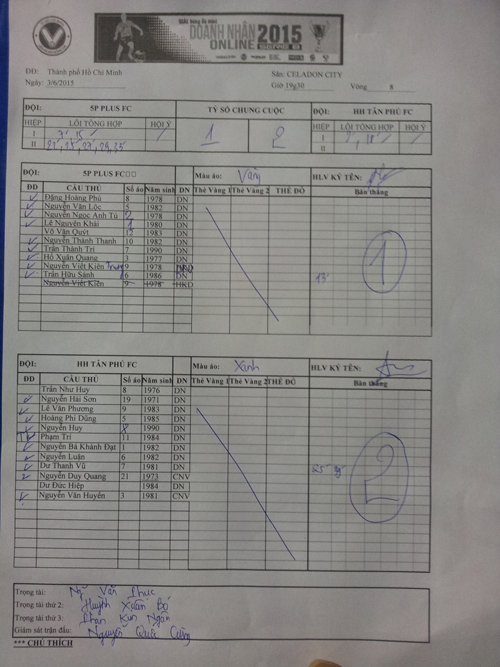 GIẢI bóng đá mini
DOANH NHÂN 2015
ONLINE
ĐĐ: Thành phố Hồ Chí Minh Sân: CELADON CITY
Ngày: 3/6/2015 Giờ 19g30 Vòng 8
ĐỘI: 5P PLUS FC TỶ SỐ CHUNG CUỘC ĐỘI: HH TÂN PHÚ FC
HIỆP LỖI TỔNG HỢP HỘI Ý 1 2 HIỆP LỖI TỔNG HỢP HỘI Ý
I I
II II
ĐỘI: 5P PLUS FC Màu áo: Vàng HLV KÝ TÊN:
DD CẦU THỦ Số áo Năm sinh DN Thẻ Vàng 1 Thẻ Vàng 2 THẺ ĐỎ Bàn thắng
Đặng Hoàng Phú 8 1978 DN
Nguyễn Văn Lôc 5 1982 DN
Nguyễn Ngọc Anh Tú 2 1978 DN
Lê Nguyên Khải 1 1980 DN
Võ Văn Quýt 12 1983 DN
Nguyễn Thành Thanh 10 1982 DN
Trần Thành Trí 7 1990 DN
Hồ Xuân Quang 3 1977 DN
Nguyễn Viết Kiên 9 1978 HKD
Trần Hữu Sánh 6 1986 DN
Nguyễn Viết Kiên 9 1978 HKD
13' 1
ĐỘI: HH TÂN PHÚ FC Màu áo: Xanh HLV KÝ TÊN:
DD CẦU THỦ Số áo Năm sinh DN Thẻ Vàng 1 Thẻ Vàng 2 THẺ ĐỎ Bàn thắng
Trần Như Huy 8 1976 DN
Nguyễn Hải Sơn 19 1971 DN
Lê Văn Phương 9 1983 DN
Hoàng Phi Dũng 5 1985 DN
Nguyễn Huy 1990 DN
Phạm Trí 11 1984 DN
Nguyễn Bá Khánh Đạt 1 1982 DN
Nguyễn Luận 6 1982 DN
Dư Thanh Vũ 7 1981 DN
Nguyễn Duy Quang 21 1973 CNV
Dư Đức Hiệp 1984 DN
Nguyễn Văn Huyên 3 1981 CNV
25' 2
Trọng tài: Ng Văn Phúc
Trọng tài thứ 2: Huỳnh Xuân Bố
Trọng tài thứ 3: Phan Kim Ngân
Giám sát trận đấu: Nguyễn Quốc Cường
*** CHÚ THÍCH